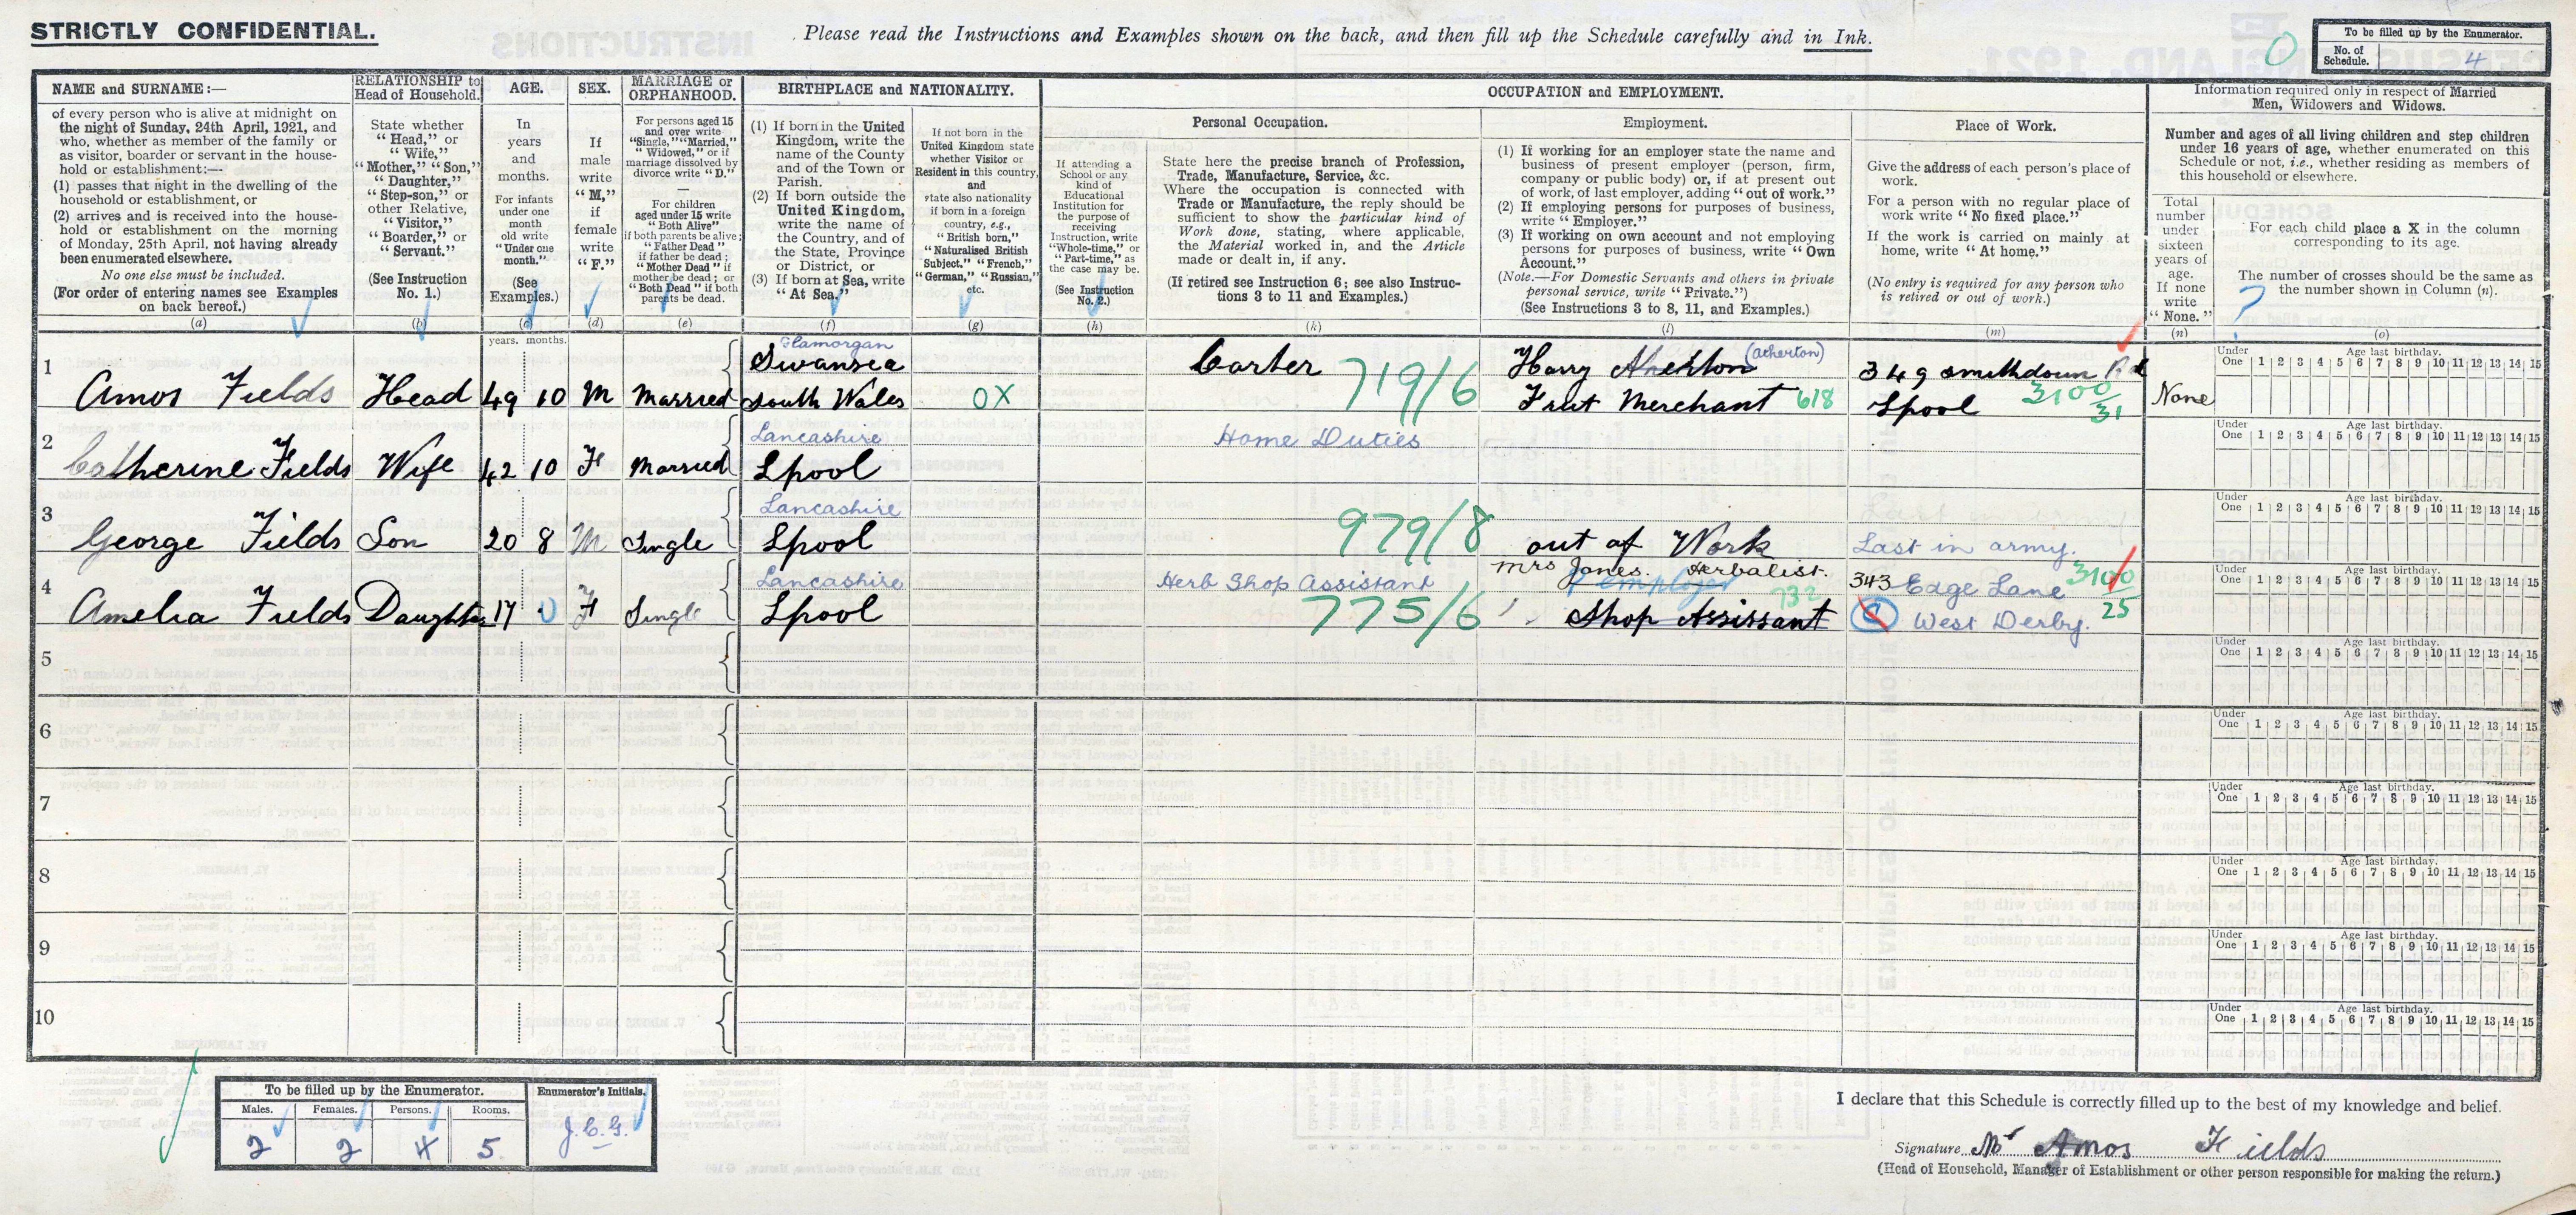 STRICTLY CONFIDENTIAL.
Please read the Instructions and Examples shown on the back, and then fill up the Schedule carefully and in Ink.
To be filled up by the Enumerator.
No. of Schedule. 4
0
NAME and SURNAME:—
of every person who is alive at midnight on
the night of Sunday, 24th April, 1921, and
who, whether as member of the family or
as visitor, boarder or servant in the house-
hold or establishment:—
(1) passes that night in the dwelling of the
household or establishment, or
(2) arrives and is received into the house-
hold or establishment on the morning
of Monday, 25th April, not having already
been enumerated elsewhere.
No one else must be included.
(For order of entering names see Examples
on back hereof.)
(a)
RELATIONSHIP to
Head of Household.
State whether
"Head," or
"Wife,"
"Mother," "Son,"
"Daughter,"
"Step-son," or
other Relative,
"Visitor,"
"Boarder," or
"Servant."
(See Instruction
No. 1.)
(b)
AGE.
In
years
and
months.
For infants
under one
month
old write
"Under one
month."
(See
Examples.)
(c)
years. months.
SEX.
If
male
write
"M,"
if
female
write
"F."
(d)
MARRIAGE or
ORPHANHOOD.
For persons aged 15
and over write
"Single," "Married,"
"Widowed," or if
marriage dissolved by
divorce write "D."
—
For children
aged under 15 write
"Both Alive"
if both parents be alive;
"Father Dead"
if father be dead;
"Mother Dead" if
mother be dead; or
"Both Dead" if both
parents be dead.
(e)
BIRTHPLACE and NATIONALITY.
(1) If born in the United
Kingdom, write the
name of the County
and of the Town or
Parish.
(2) If born outside the
United Kingdom,
write the name of
the Country, and of
the State, Province
or District, or
(3) If born at Sea, write
"At Sea."
(f)
If not born in the
United Kingdom state
whether Visitor or
Resident in this country,
and
state also nationality
if born in a foreign
country, e.g.,
"British born,"
"Naturalised British
Subject." "French,"
"German," "Russian,"
etc.
(g)
OCCUPATION and EMPLOYMENT.
If attending a
School or any
kind of
Educational
Institution for
the purpose of
receiving
Instruction, write
"Whole-time," or
"Part-time," as
the case may be.
(See Instruction
No. 2.)
(h)
Personal Occupation.
State here the precise branch of Profession,
Trade, Manufacture, Service, &c.
Where the occupation is connected with
Trade or Manufacture, the reply should be
sufficient to show the particular kind of
Work done, stating, where applicable,
the Material worked in, and the Article
made or dealt in, if any.
(If retired see Instruction 6; see also Instruc-
tions 3 to 11 and Examples.)
(k)
Employment.
(1) If working for an employer state the name and
business of present employer (person, firm,
company or public body) or, if at present out
of work, of last employer, adding "out of work."
(2) If employing persons for purposes of business,
write "Employer."
(3) If working on own account and not employing
persons for purposes of business, write "Own
Account."
(Note.—For Domestic Servants and others in private
personal service, write "Private.")
(See Instructions 3 to 8, 11, and Examples.)
(l)
Place of Work.
Give the address of each person's place of
work.
For a person with no regular place of
work write "No fixed place."
If the work is carried on mainly at
home, write "At home."
(No entry is required for any person who
is retired or out of work.)
(m)
Information required only in respect of Married
Men, Widowers and Widows.
Number and ages of all living children and step children
under 16 years of age, whether enumerated on this
Schedule or not, i.e., whether residing as members of
this household or elsewhere.
Total
number
under
sixteen
years of
age.
If none
write
"None."
(n)
For each child place a X in the column
corresponding to its age.
The number of crosses should be the same as
the number shown in Column (n).
?
(o)
1
Glamorgan
Swansea
Carter 719/6
Harry (Atherton)
349 Smithdown Rd
Amos Fields Head 49 10 M Married South Wales OX
Fruit Merchant 618
Lpool 3100/31
None
Under One 1 2 3 4 5 6 7 8 9 10 11 12 13 14 15
Age last birthday.
2
Lancashire
Home Duties
Catherine Fields Wife 42 10 F Married Lpool
Under One 1 2 3 4 5 6 7 8 9 10 11 12 13 14 15
Age last birthday.
3
Lancashire
979/8
George Fields Son 20 8 M Single Lpool
out of Work
Last in army.
Under One 1 2 3 4 5 6 7 8 9 10 11 12 13 14 15
Age last birthday.
4
Lancashire
Herb Shop Assistant
Mrs Jones. Herbalist.
Employer 732
343 Edge Lane 3100/25
Amelia Fields Daughter 17 0 F Single Lpool
775/6
Shop Assissant
West Derby.
Under One 1 2 3 4 5 6 7 8 9 10 11 12 13 14 15
Age last birthday.
5
Under One 1 2 3 4 5 6 7 8 9 10 11 12 13 14 15
Age last birthday.
6
Under One 1 2 3 4 5 6 7 8 9 10 11 12 13 14 15
Age last birthday.
7
Under One 1 2 3 4 5 6 7 8 9 10 11 12 13 14 15
Age last birthday.
8
Under One 1 2 3 4 5 6 7 8 9 10 11 12 13 14 15
Age last birthday.
9
Under One 1 2 3 4 5 6 7 8 9 10 11 12 13 14 15
Age last birthday.
10
Under One 1 2 3 4 5 6 7 8 9 10 11 12 13 14 15
Age last birthday.
To be filled up by the Enumerator.
Males. Females. Persons. Rooms.
2 2 4 5
Enumerator's Initials.
J.C.G.
I declare that this Schedule is correctly filled up to the best of my knowledge and belief.
Signature Mr Amos Fields
(Head of Household, Manager of Establishment or other person responsible for making the return.)